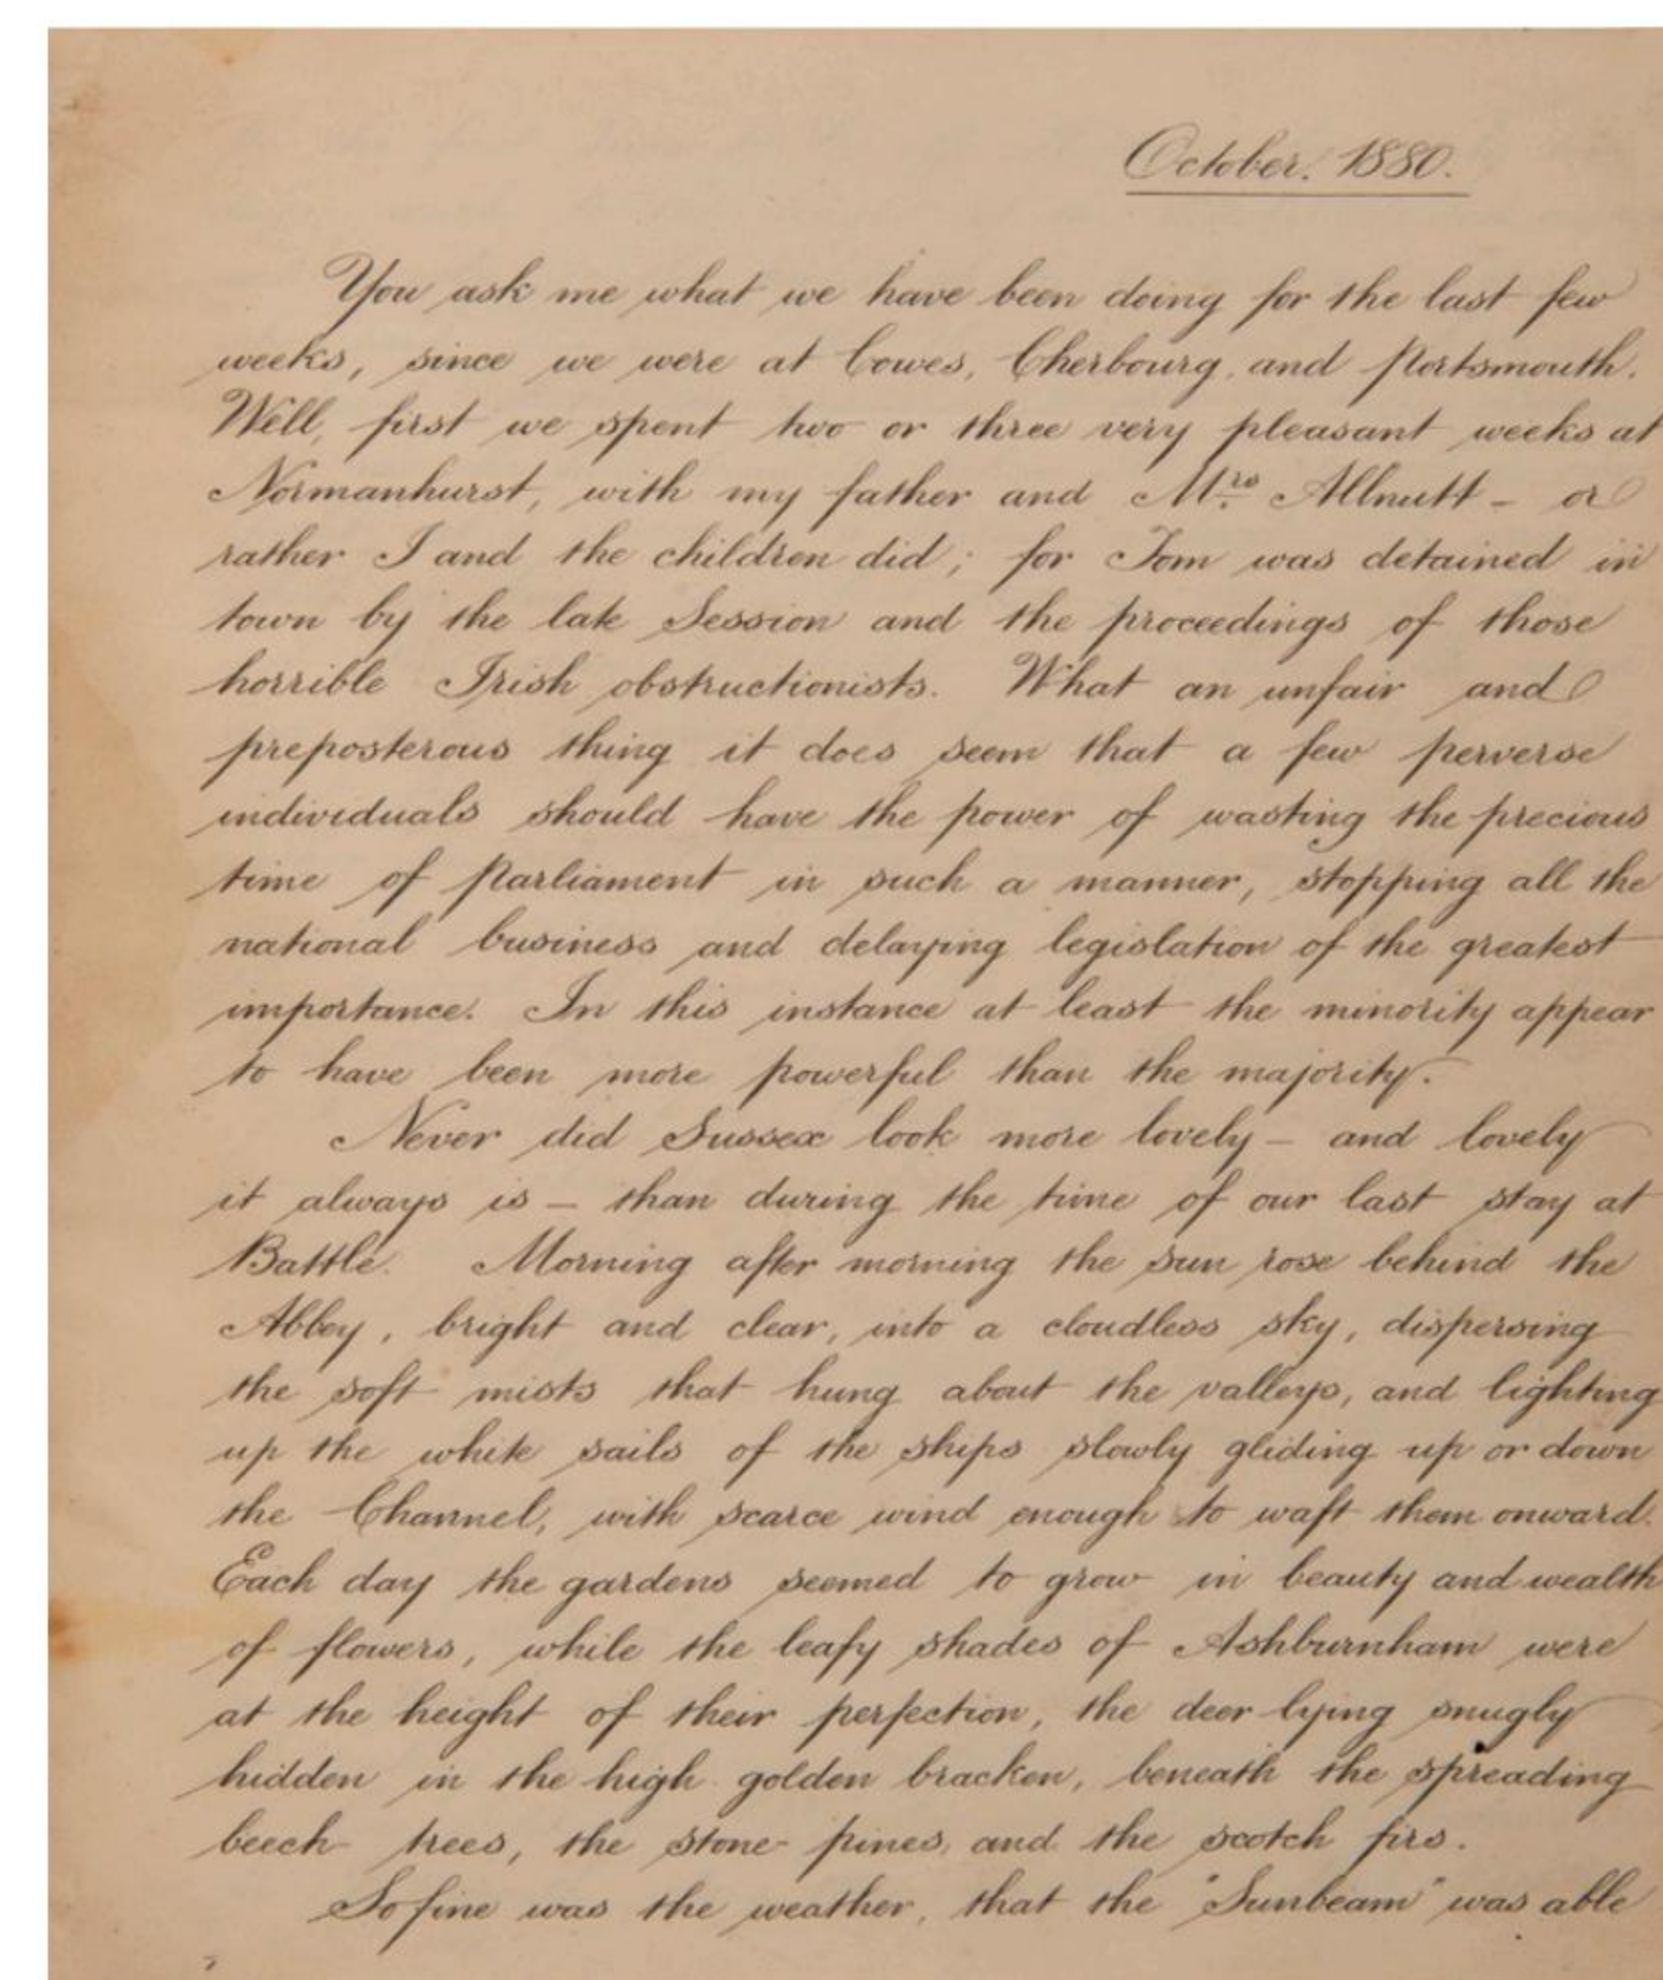 October. 1880.
You ask me what we have been doing for the last few
weeks, since we were at Cowes, Cherbourg, and Portsmouth.
Well, first we spent two or three very pleasant weeks at
Normanhurst, with my father and Mrs. Allnutt – or
rather I and the children did; for Tom was detained in
town by the late Session and the proceedings of those
horrible Irish obstructionists. What an unfair and
preposterous thing it does seem that a few perverse
individuals should have the power of wasting the precious
time of Parliament in such a manner, stopping all the
national business and delaying legislation of the greatest
importance. In this instance at least the minority appear
to have been more powerful than the majority.
Never did Sussex look more lovely – and lovely
it always is – than during the time of our last stay at
Battle. Morning after morning the sun rose behind the
Abbey, bright and clear, into a cloudless sky, dispersing
the soft mists that hung about the valleys, and lighting
up the white sails of the ships slowly gliding up or down
the Channel, with scarce wind enough to waft them onward.
Each day the gardens seemed to grow in beauty and wealth
of flowers, while the leafy shades of Ashburnham were
at the height of their perfection, the deer lying snugly
hidden in the high golden bracken, beneath the spreading
beech trees, the stone-pines, and the scotch firs.
So fine was the weather, that the "Sunbeam" was able